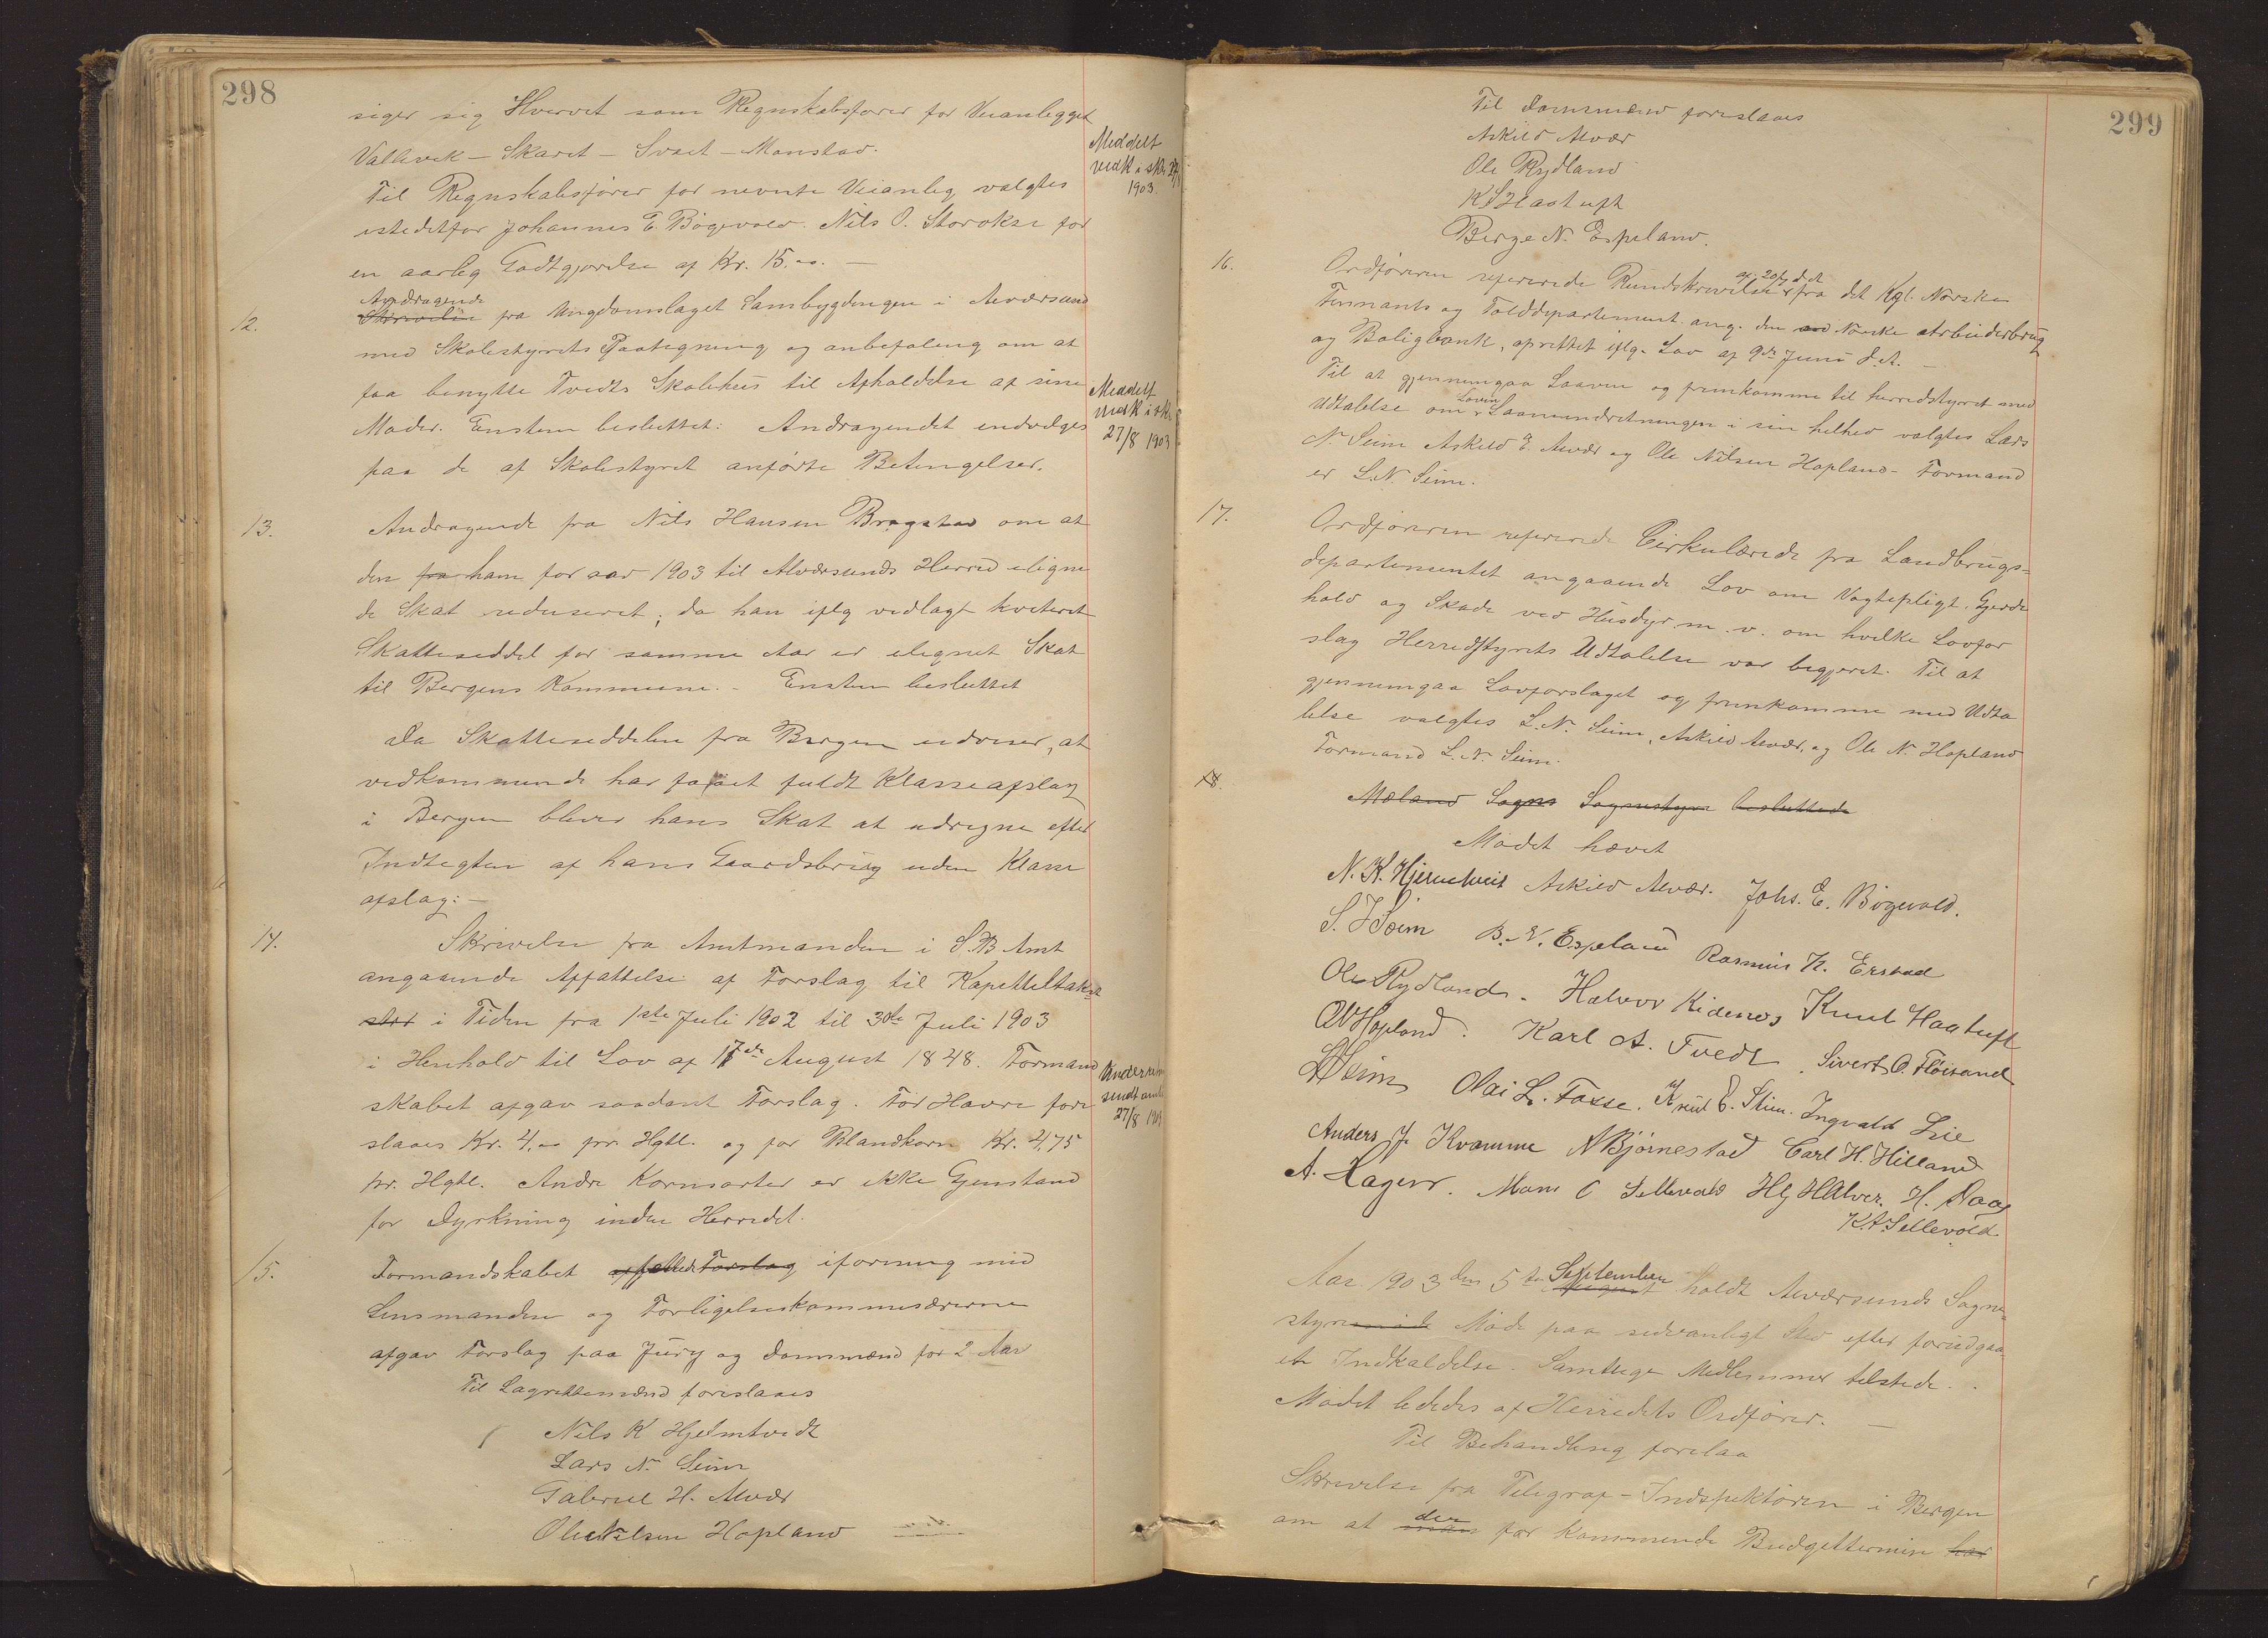 298
siger sig Hvervet som Regnskabsfører for Veianlegget
Vallevik - Skaret - Svaet - Monstad.
Meddelt
vedk i skr 27/8
1903
Til Regnskabsfører for nevnte Veianleg valgtes
istedetfor Johannes E. Bøgevold. Nils O. Storokse for
en aarleg Godtgjørelse af Kr. 15.00. —
12.
Andragende
Skrivelse fra Ungdomslaget Sambygdingen i Alversund
med Skolestyrets Paategning og anbefaling om at
faa benytte Tvedts Skolehus til Afholdelse af sine
Møder. Enstem besluttet: Andragendet indvilges
paa de af Skolestyret anførte Betingelser.
Meddelt
vedk i skr
27/8 1903
13.
Andragende fra Nils Hansen Bragstad om at
den fra ham for aar 1903 til Alversunds Herred iligne
de Skat reduseret; da han iflg vedlagt kvitteret
Skatteseddel for samme Aar er ilignet Skat
til Bergens Kommune. - Enstem besluttet
Da Skatteseddelen fra Bergen udviser, at
vedkommende har faaet fuldt Klasseafslag
i Bergen bliver hans Skat at udregne efter
Indtegten af hans Gaardsbrug uden Klasse
afslag: —
14.
Skrivelse fra Amtmanden i S. B. Amt
angaaende Affattelse af Forslag til Kapitteltakst
ster i Tiden fra 1ste Juli 1902 til 30te Juli 1903
i Henhold til Lov af 17de August 1848. Formand
skabet afgav saadant Forslag. For Havre fore
slaaes Kr. 4,00 pr. Hgtl. og for Blandkorn Kr. 4,75
pr. Hgtl. Andre Kornsorter er ikke Gjenstand
for Dyrkning inden Herredet.
27/8 1903
15.
Formandskabet affattede Forslag iforening med
Lensmanden og Forligelseskommisærerne
afgav Forslag paa Jury og Domsmænd for 2 Aar
Til Lagrettemænd foreslaaes
Nils K Hjelmtvedt
Lars N. Seim
Gabriel H. Alver
Ole Nilsen Hopland
299
Til Domsmænd foreslaaes
Askild Alvær
Ole Rydland
K S Haatuft
Berge N. Espeland.
16.
Ordføreren refererede Rundskrivelse af 20/7 d. A. fra det Kgl. Norske
Finnants og Tolddepartement ang. den Norske Arbeiderbrug
og Boligbank, oprettet iflg. Lov af 9de Juni d. A. —
Til at gjennemgaa Loaven og fremkomme til herredstyret med
Udtalelse om Loven Laaneindretningen i sin helhed valgtes Lars
N. Seim Askild E. Alvær og Ole Nilsen Hopland - Formand
er L. N. Seim.
17.
Ordføreren refererede Cirkulærede fra Landbrugs=
departementet angaaende Lov om Vogtepligt, Gjerde
hold og Skade ved Husdyr m. v. om hvilke Lovfor
slag Herredstyrets Udtalelse var begjeret. Til at
gjennemgaa Lovforslaget og fremkomme med Udta
lelse valgtes L. N. Seim, Askild Alvær, og Ole N. Hopland
Formand L. N. Seim.
18.
Mæland Sogns Sognestyre besluttede
Mødet hævet
N. K. Hjelmtveit Askild Alvær. Johs. E. Bøgevold.
S. J Seim B. N. Espeland Rasmus K. Erstad
Ole Rydland. Halvor Kidenes Knut Haatuft
ON Hopland. Karl A. Tvedt. Sivert O. Fløisand
LN Seim Olai L. Fosse. Knut E. Stim. Ingvald Lie
Anders J. Kvamme N Bjørnestad Carl H. Hilland
A. Hagen. Mons O Sellevold Hg H Alver. H. Naas
K. A. Sellevold.
Aar 1903 den 5te September August holdt Alversunds Sogne
styre Møde paa sedvanligt Sted efter foriudgaa
ete Indkaldelse. Samtlige Medlemmer tilstede.
Mødet lededes af Herredets Ordfører. —
Til Behandling forelaa
Skrivelse fra Telegraf-Indspektøren i Bergen
om at der for kommende Budgettermin har